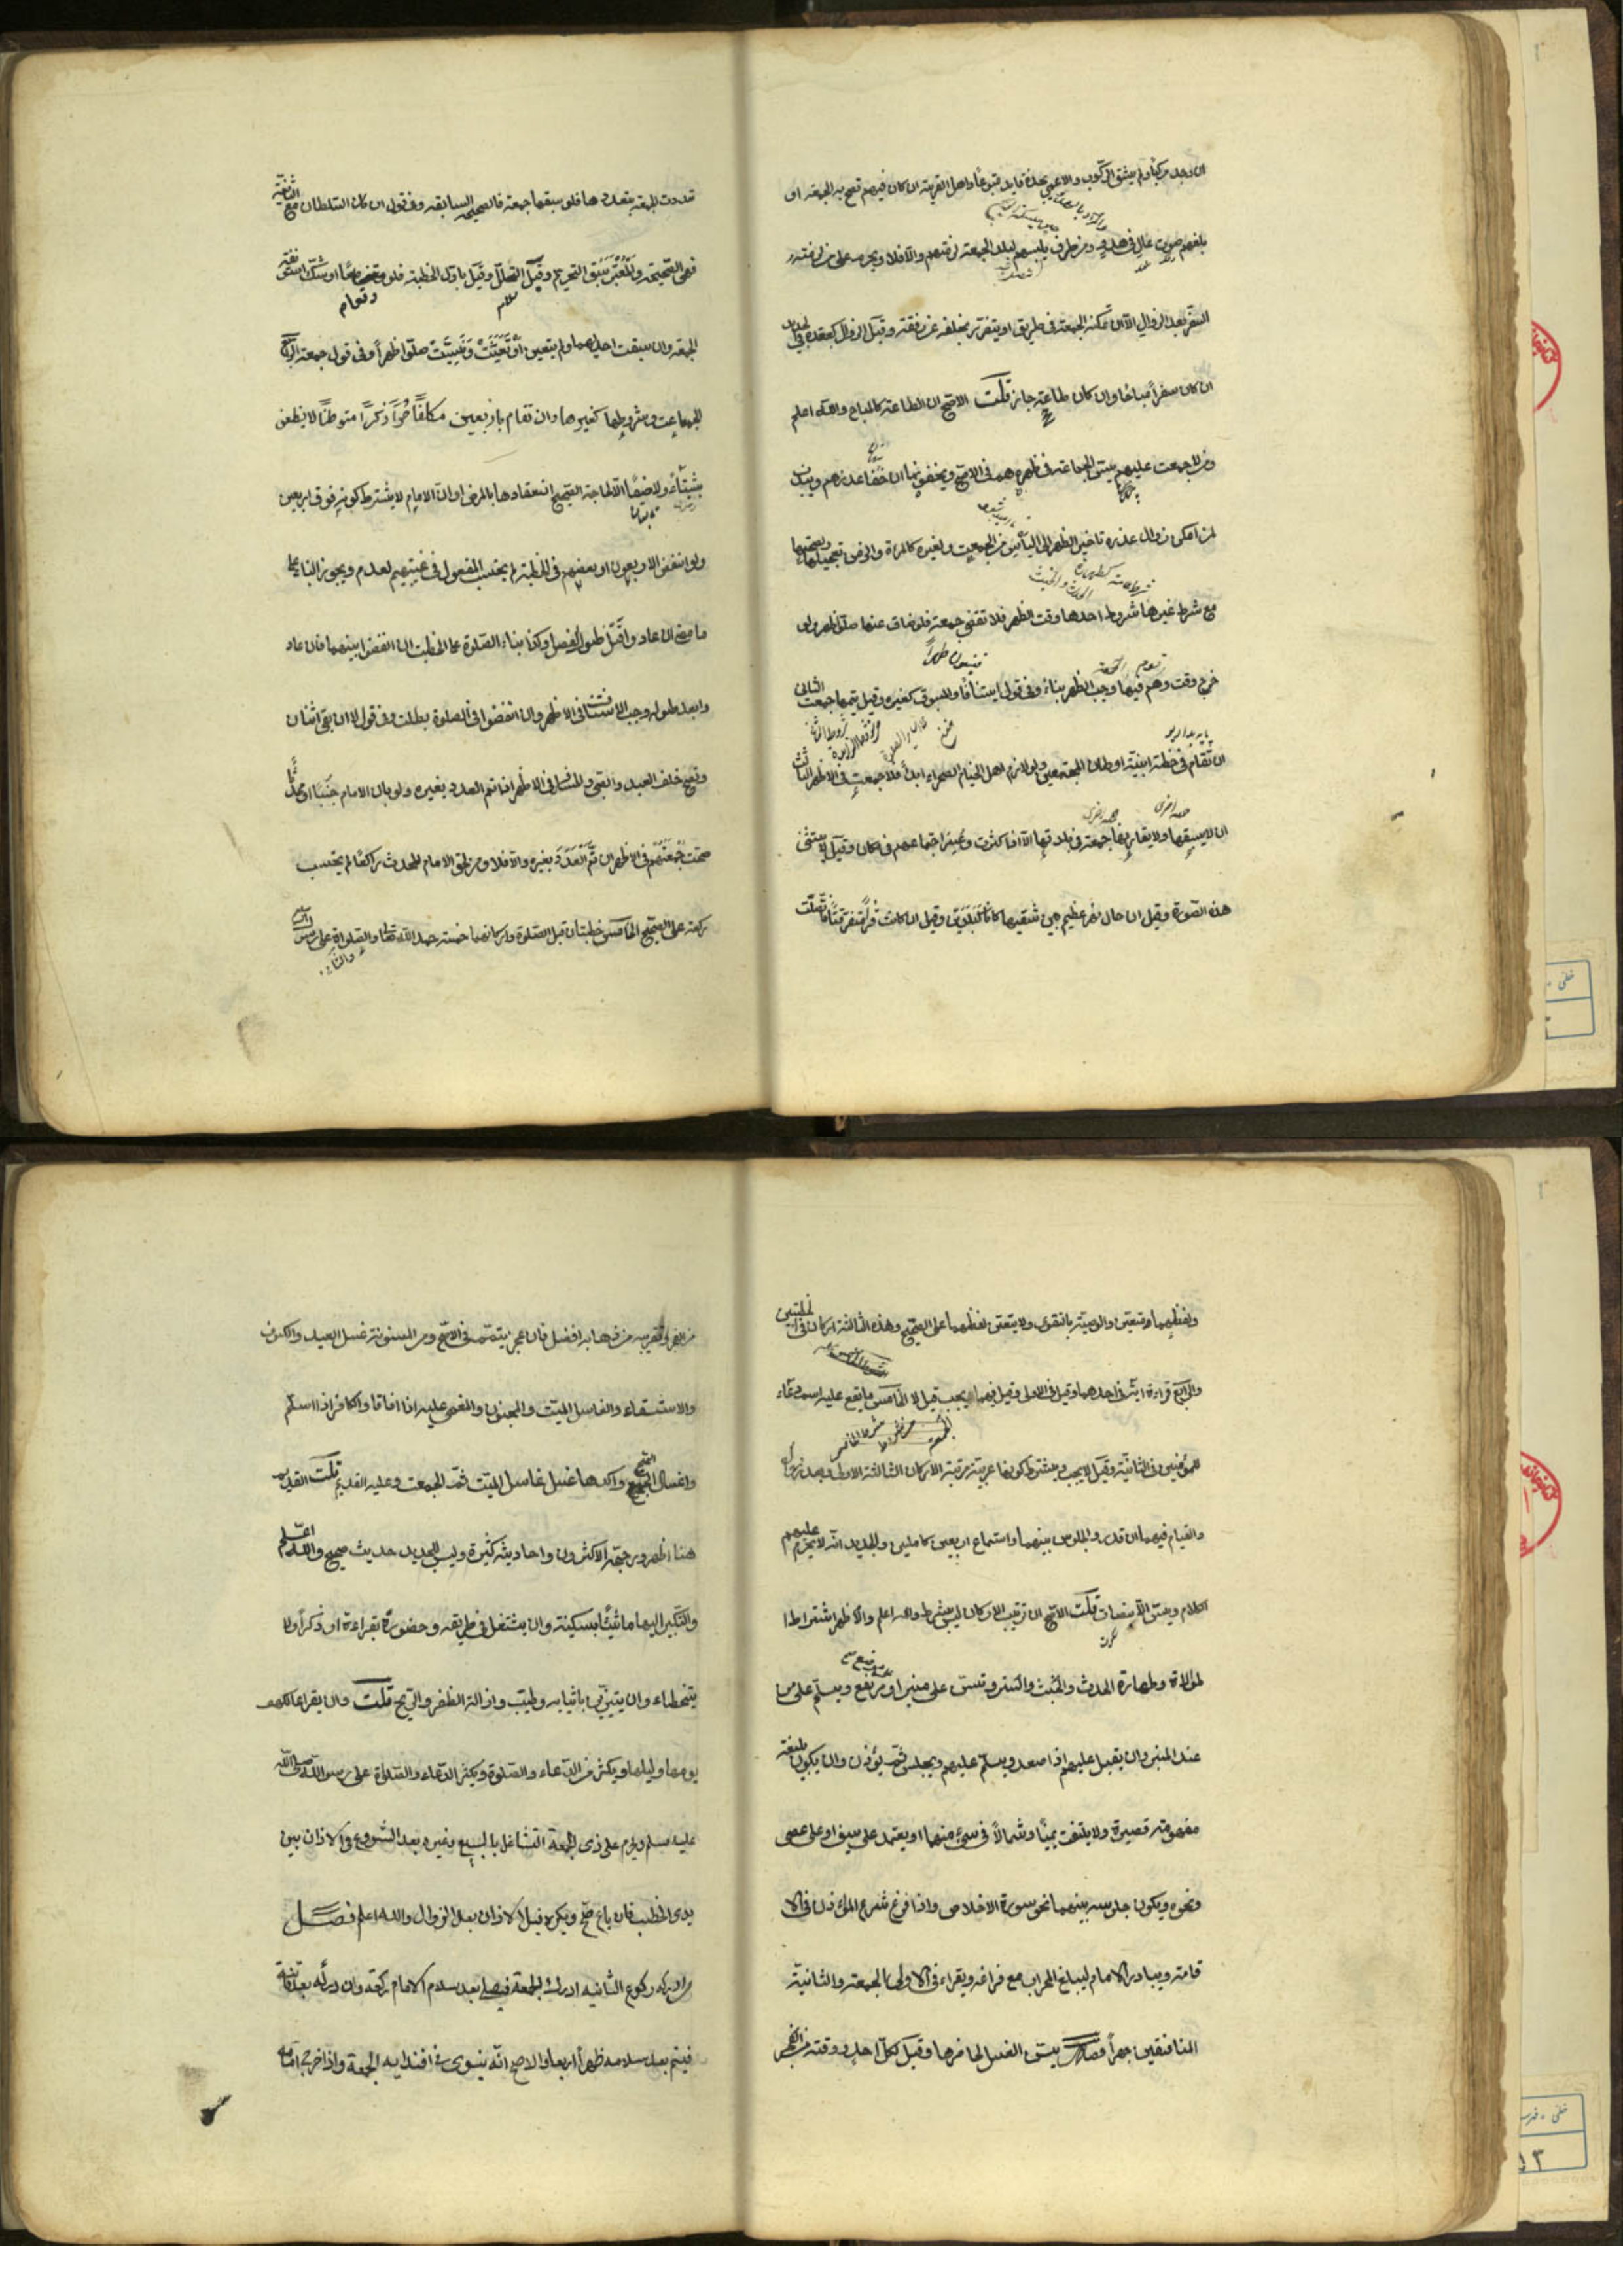 ان وجد مركبا ولم يشق الركوب والاعمى يجد قايدا متبوعا واهل القرية ان كان فيهم تصح به الجمعة او
بلغهم صوت عال في هدو من طرف يليهم لبلد الجمعة لزمتهم والا فلا ويحرم على من لزمته
السفر بعد الزوال الا ان تمكنه الجمعة في طريق او يتضرر بتخلفه عن رفقته وقبل الزوال كبعده في الجديد
ان كان سفرا مباحا وان كان طاعة جاز قلت الاصح ان الطاعة كالمباح والله اعلم
ومن لا جمعت عليهم يسن الجماعة في ظهرهم في الاصح ويخفونها ان خفا عذرهم ويندب
لمن امكن زوال عذره تاخير الظهر الى الياس من الجمعت ولغيره كالمرة والزمن تعجيلها ولصحتها
مع شرط غيرها شروط احدها وقت الظهر فلا تقضي جمعة فلو ضاق عنها صلوا ظهرا ولو
خرج وقت وهم فيها وجب الظهر بناء وفي قول استنافا والمسبوق كغيره وقيل يتمها جمعت الثاني
ان تقام في خطة ابنية اوطان المجتمعين ولو لازم اهل الخيام الصحراء ابدا فلا جمعت في الاظهر الثالث
ان لا يسبقها ولا يقارنها جمعة في بلدتها الا اذا كثرت وعسر اجتماعهم في مكان وقيل لا يستثنى
هذه الصورة وقيل ان حال نهر عظيم بين شقيها كانا كبلدين وقيل ان كانت قرى متفرقتا فاتصلت
تعددت الجمعة بتعددها فلو سبقها جمعة فالصحيحة السابقة وفي قول ان كان السلطان مع الثانية
فهي الصحيحة والمعتبر سبق التحرم وقيل التحلل وقيل باول الخطبة فلو وقعتا معا او شك استونفت
الجمعة وان سبقت احديهما ولم يتعين او تعينت ونسيت صلوا ظهرا وفي قول جمعة الرابع
الجماعت وشروطها كغيرها وان تقام باربعين مكلفا حرا ذكرا متوطنا لا يظعن
شتاء ولا ضيفا الا لحاجة الصحيح انعقادها بالمرضى وان الامام لا يشترط كونه فوق اربعين
ولو انفض الاربعون او بعضهم في الخطبة لم يحتسب المفعول في غيبتهم لعدم ويجوز البناء على
ما مضى ان عادوا قبل طول الفصل وكذا بناء الصلوة على الخطبت ان انفضوا بينهما فان عاد
وا بعد طوله وجب الاستيناف في الاظهر وان انفضوا في الصلوة بطلت وفي قول لا ان بقي اثنان
وتصح خلف العبد والصبي والمسافر في الاظهر اذا تم العدد بغيره ولو بان الامام جنبا او محدثا
صحت جمعتهم في الاظهر ان تم العدد بغيره والا فلا ومن لحق الامام المحدث راكعا لم يحتسب
ركعة على الصحيح الخامس خطبتان قبل الصلوة واركانهما خمسة حمد الله تعالى والصلواة على
ولفظهما متعين والوصية بالتقوى ولا يتعين لفظهما على الصحيح وهذه الثلاثة اركان في الخطبتين
والرابع قراءة اية في احدهما وقيل في الاولى وقيل فيهما يجب وقيل لا الخامس ما يقع عليه اسم دعاء
للمؤمنين في الثانية وقيل لا يجب ويشترط كونها عربية مرتبة الاركان الثالثة الاولى وبعد زوال
والقيام فيهما ان قدر والجلوس بينهما واستماع اربعين كاملين والجديد انه لا يحرم عليهم
الكلام ويسن الانصات قلت الاصح ان ترتيب الاركان ليس بشرط والله اعلم والاظهر اشتراط ا
لموالاة وطهارة الحدث والخبث والستر وتسن على منبر او مرتفع ويسلم على من
عند المنبر وان يقبل عليهم اذا صعد ويسلم عليهم ويجلس ثم يؤذن وان يكون بليغة
مفهومة قصيرة ولا يلتفت يمينا وشمالا في شيء منهما او يعتمد على سيف او على عصى
ونحوه ويكون جلوسه بينهما نحو سورة الاخلاص واذا فرغ شرع المؤذن في الا
قامة ويبادر الامام ليبلغ المحراب مع فراغه ويقراء في الاولى الجمعة والثانية
المنافقين جهرا فصل يسن الغسل لحاضرها وقيل لكل احد ووقته من الفجر
من الفجر وتقريبه من ذهابه افضل فان عجز يتيمم في الاصح ومن المسنونة غسل العيد والكسوف
والاستسقاء والغاسل الميت والمجنون والمغمى عليه اذا افاقا والكافر اذا اسلم
واغسال الحج واكدها غسل غاسل الميت ثم الجمعت وعليه القديم قلت القديم
هنا اظهر ورجحه الاكثرون واحاديثه كثيرة وليس للجديد حديث صحيح والله اعلم
والتبكير اليها ماشيا بسكينة وان يشتغل في طريقه وحضوره بقراءة او ذكر ولا
يتخطاء وان يتزين باثيابه وطيب وازالة الظفر والريح قلت وان يقرا الكهف
يومها وليلها ويكثر من الدعاء والصلوة ويكثر الدعاء والصلوة على رسول الله صلى الله
عليه وسلم ويحرم على ذى الجمعة التشاغل بالبيع وغيره بعد الشروع في الاذان بين
يدى الخطيب فان باع صح ويكره قبل الاذان بعد الزوال والله اعلم فصل
من ادرك ركوع الثانية ادرك الجمعة فيصلي بعد سلام الامام ركعة وان دركه بعده فاتته
فيتم بعد سلامه ظهرا اربعا والاصح انه ينوى في اقتدايه الجمعة واذا خرج امامه